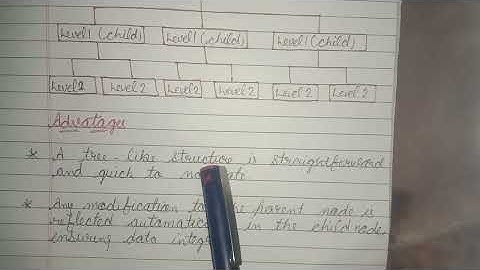 Level 1 (child) Level 1 (child) Level 1 (child)
Level 2 Level 2 Level 2 Level 2 Level 2 Level 2
Advatages
* A tree-like structure is straightforward
and quick to
* Any modification to parent node is
reflected in the child node,
ensuring data